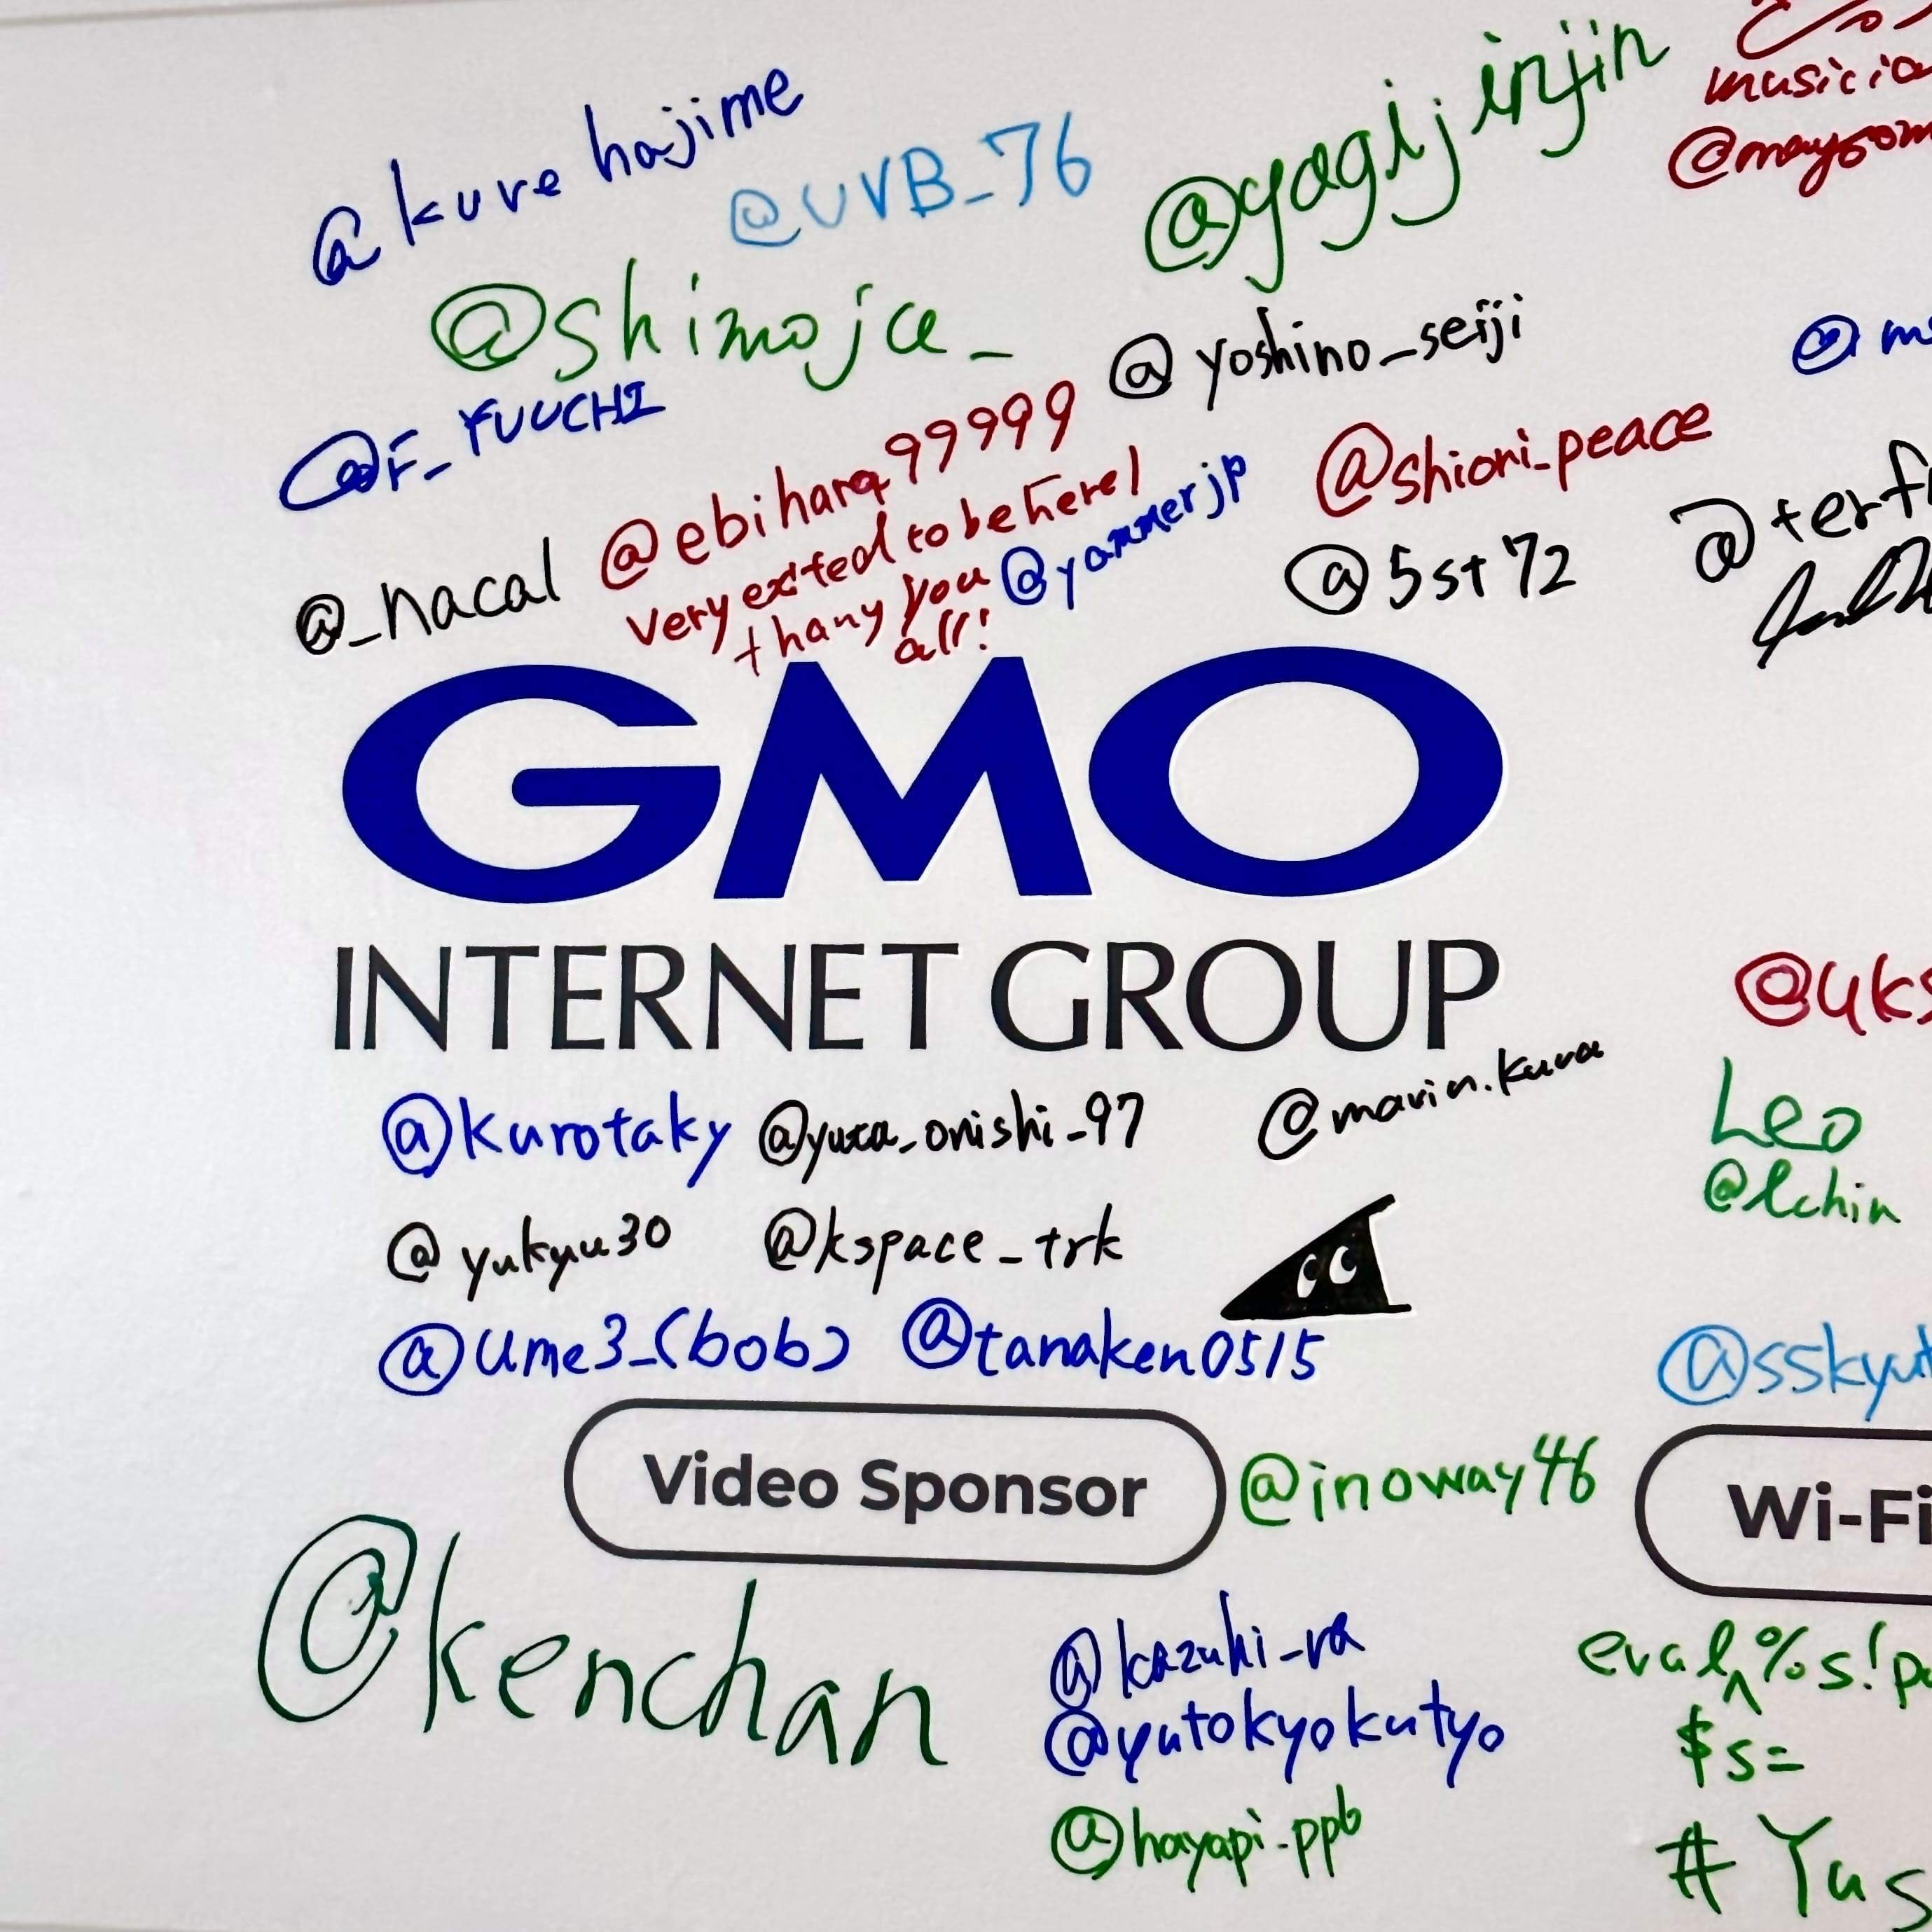 @kurehajime
@UVB_76
@yagijinjin
musicia
@shimoju_
@yoshino_seiji
@F_YUUCHI
@ebihara99999
very exited to be here!
thany you
all!
@yammerjp
@shiori_peace
@_nacal
@5st72
@terf
GMO
INTERNET GROUP
@uks
@kurotaky
@yuta_onishi_97
@marin.kura
Leo
@lchin
@yukyu30
@kspace_trk
@ume3_(bob)
@tanaken0515
@sskyu
Video Sponsor
@inoway46
Wi-Fi
@kenchan
@kazuhi_ra
@yutokyokutyo
@hayapi_ppb
eval %s!p
$s=
# Yus